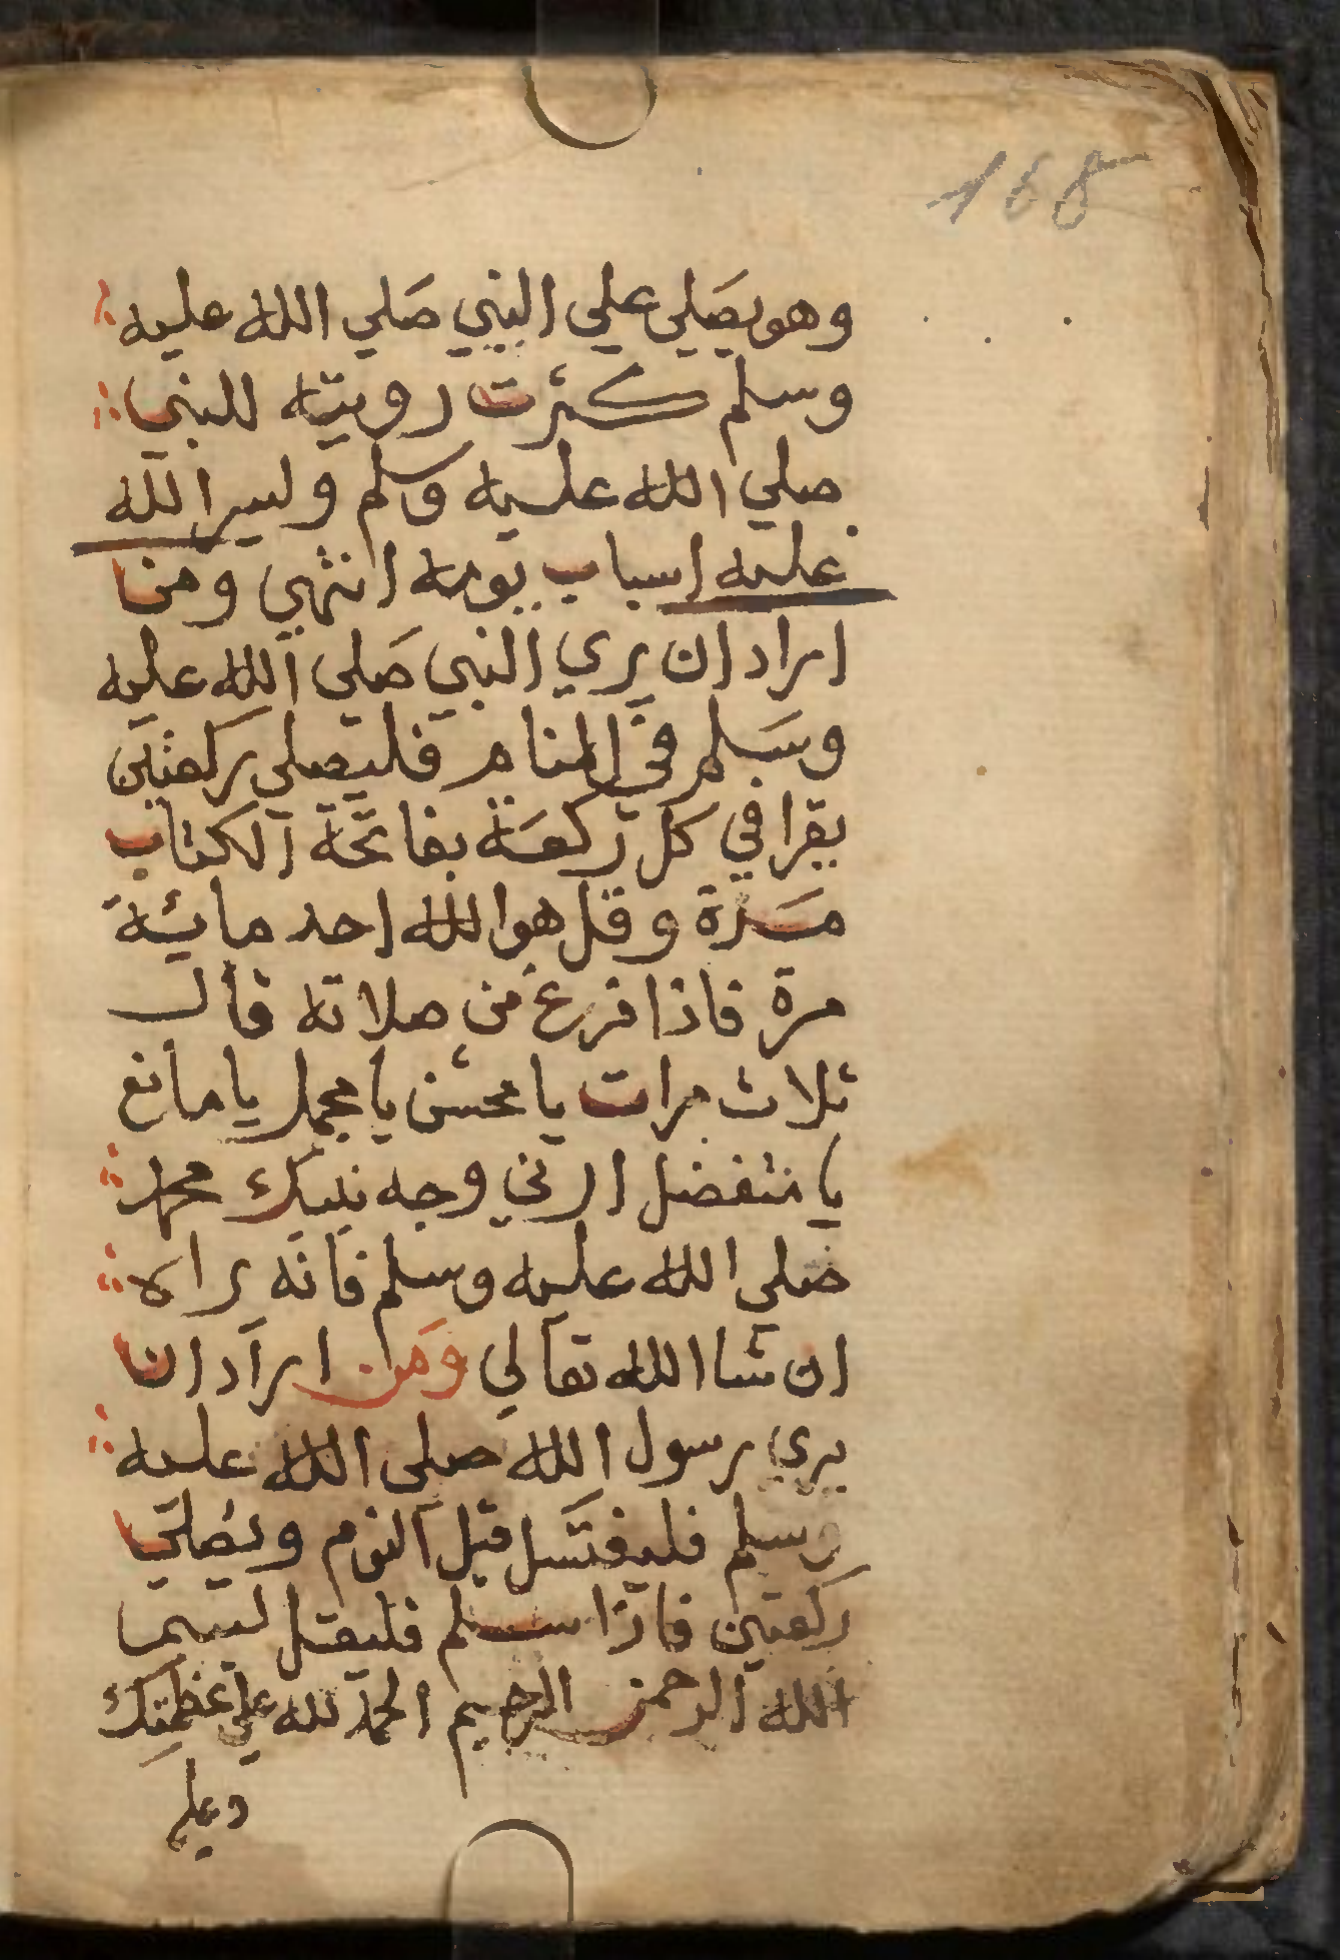 168
وهو يصلي علي النبي صلي الله عليه
وسلم كثرت رويته للنبي
صلي الله عليه وسلم وليسر الله
عليه اسباب يومه انتهي ومن
اراد ان يري النبي صلي الله عليه
وسلم في المنام فليصلي ركعتين
يقرا في كل ركعة بفاتحة الكتاب
مرة وقل هو الله احد مائية
مرة فاذا فرغ من صلاته قال
ثلاث مرات يا محسن يا مجمل يا مانع
يا متفضل ارني وجه نبيك محمد
صلي الله عليه وسلم فانه يراه
ان شا الله تعالي ومن اراد ان
يري رسول الله صلي الله عليه
وسلم فليغتسل قبل النوم ويصلي
ركعتين فاذا سلم فليقل بسم
الله الرحمن الرحيم الحمد لله علي عظمتك